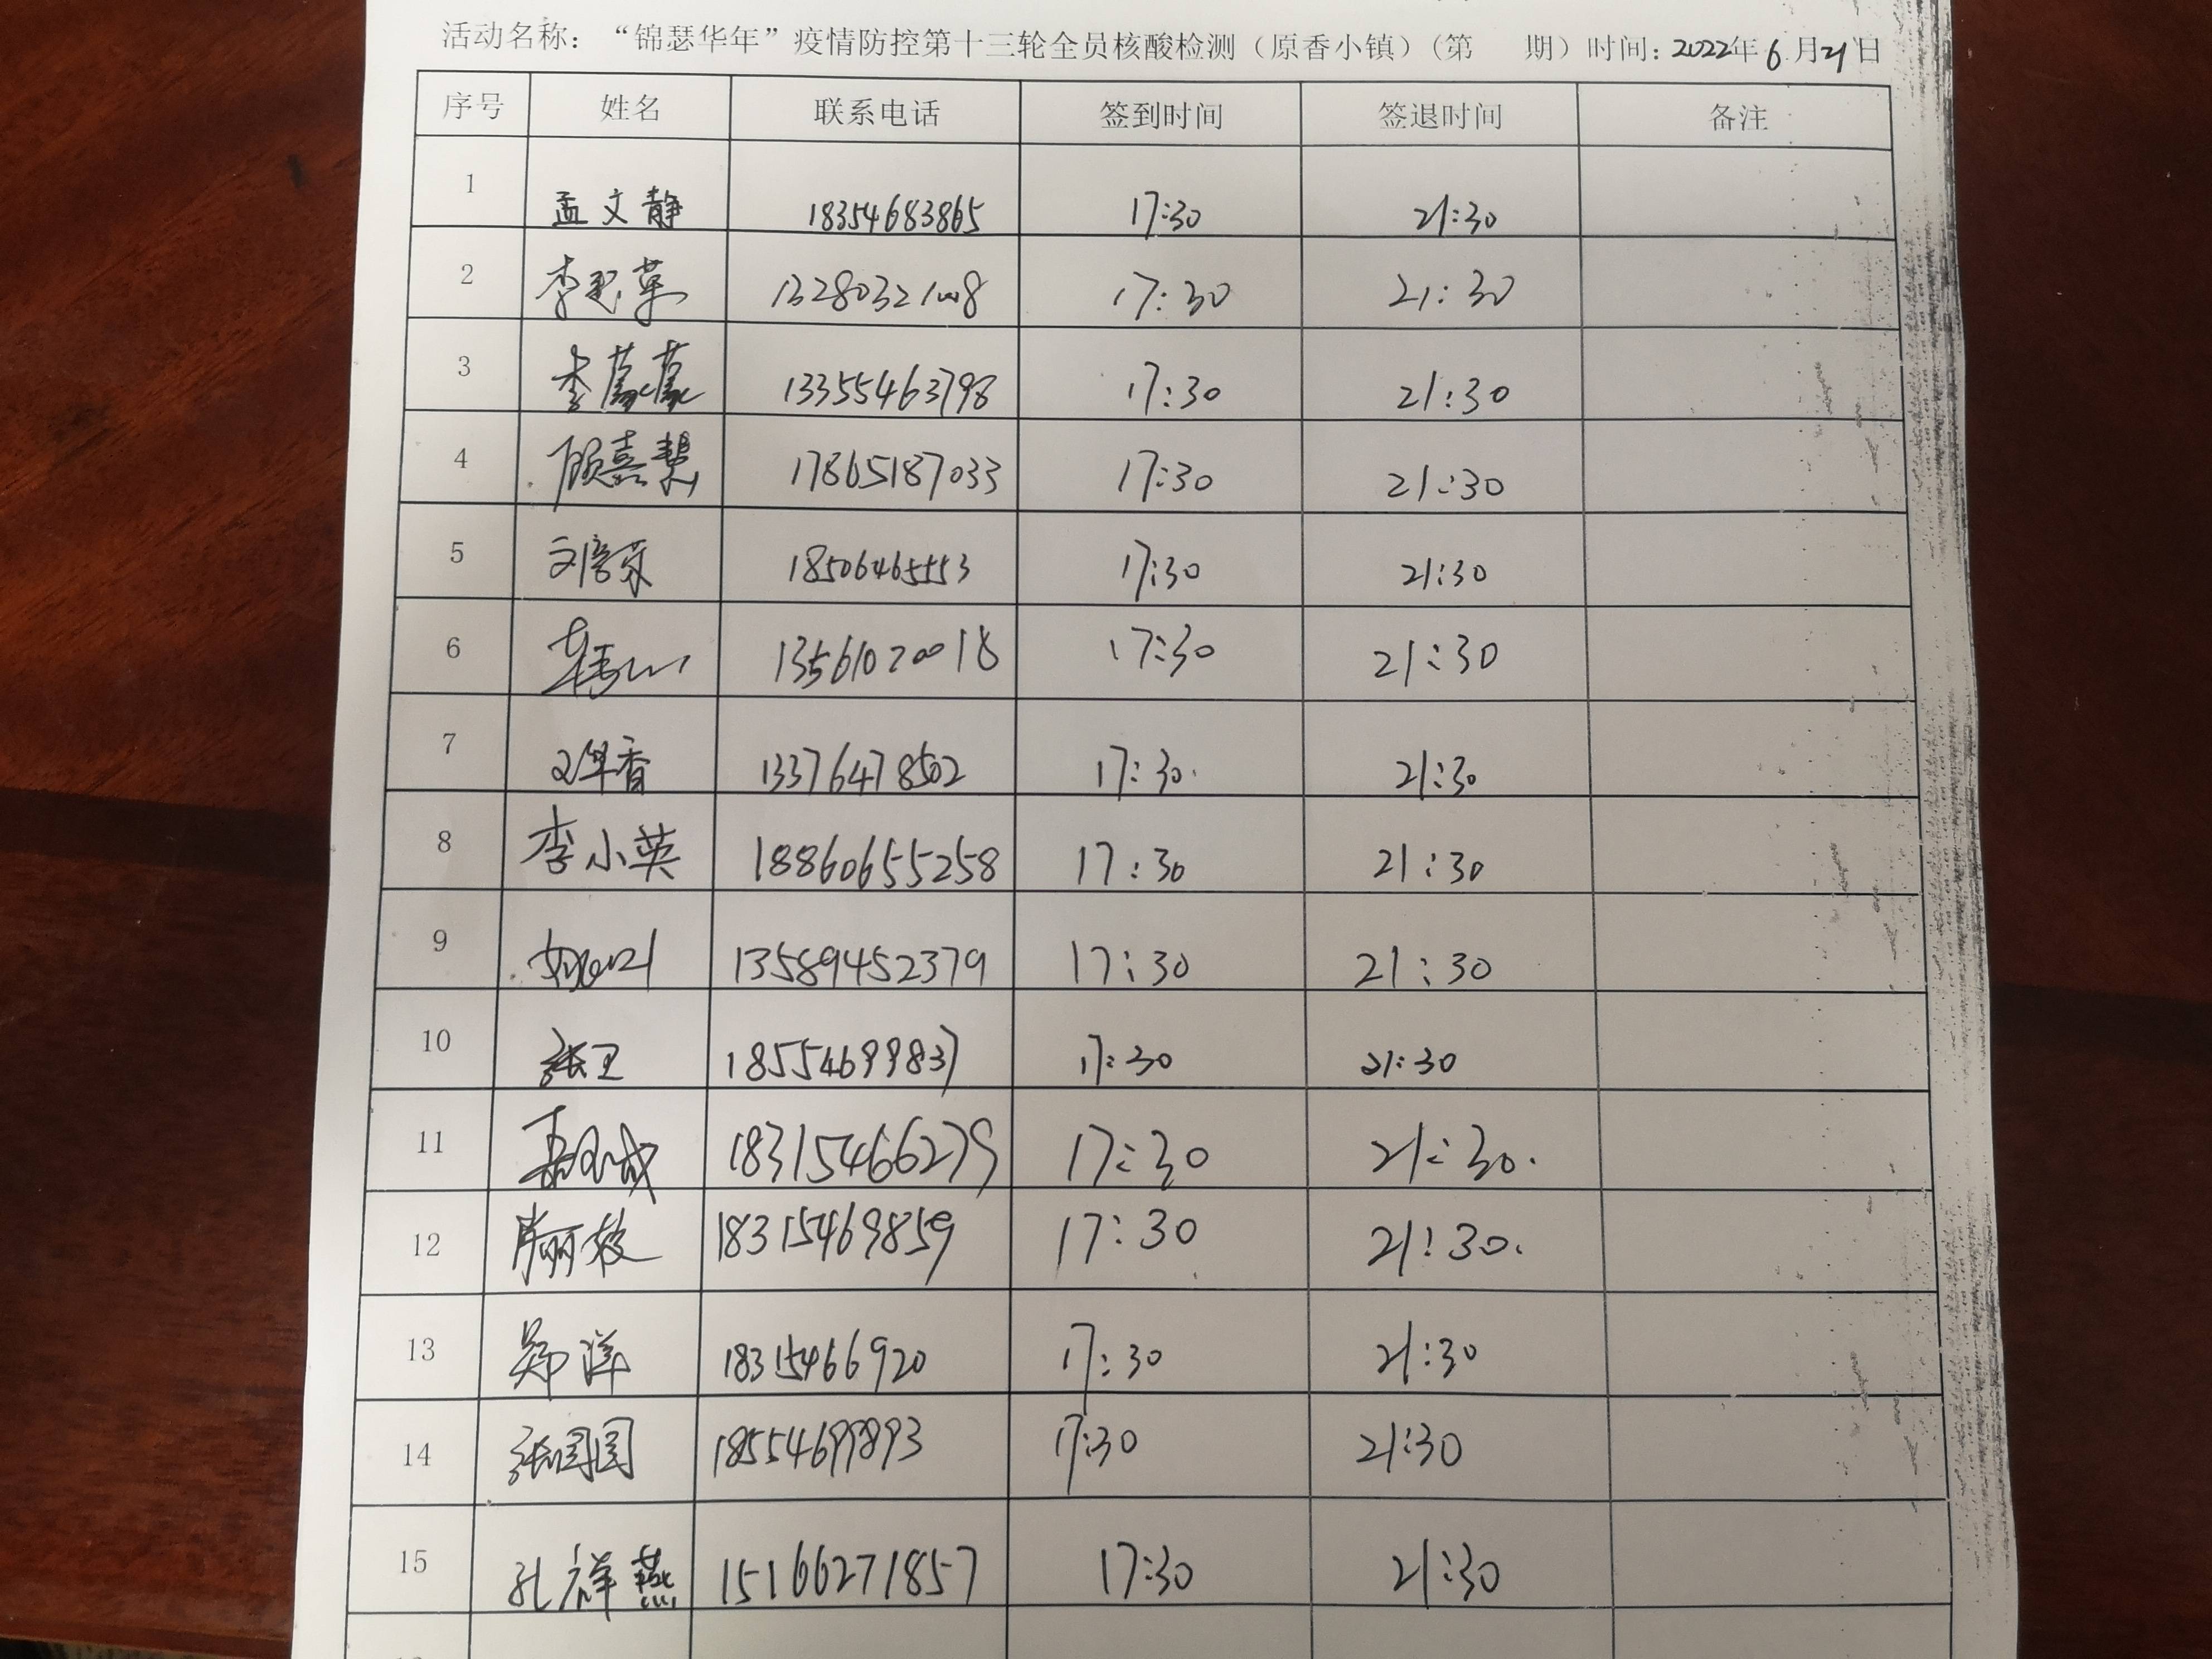 活动名称：“锦瑟华年”疫情防控第十三轮全员核酸检测（原香小镇）（第 期）时间：2022年6月21日
序号 姓名 联系电话 签到时间 签退时间 备注
1 孟文静 18354683865 17:30 21:30
2 李 13280321008 17:30 21:30
3 李蒙蒙 13355463798 17:30 21:30
4 顾嘉慧 17865187033 17:30 21:30
5 18506465553 17:30 21:30
6 13561020018 17:30 21:30
7 香 13376478502 17:30. 21:30
8 李小英 18860655258 17:30 21:30
9 13589452379 17:30 21:30
10 张卫 18554699837 17:30 21:30
11 18315466279 17:30 21:30.
12 18315469859 17:30 21:30.
13 郑洋 18315466920 17:30 21:30
14 张园园 18554699893 17:30 21:30
15 孔祥燕 15166271857 17:30 21:30